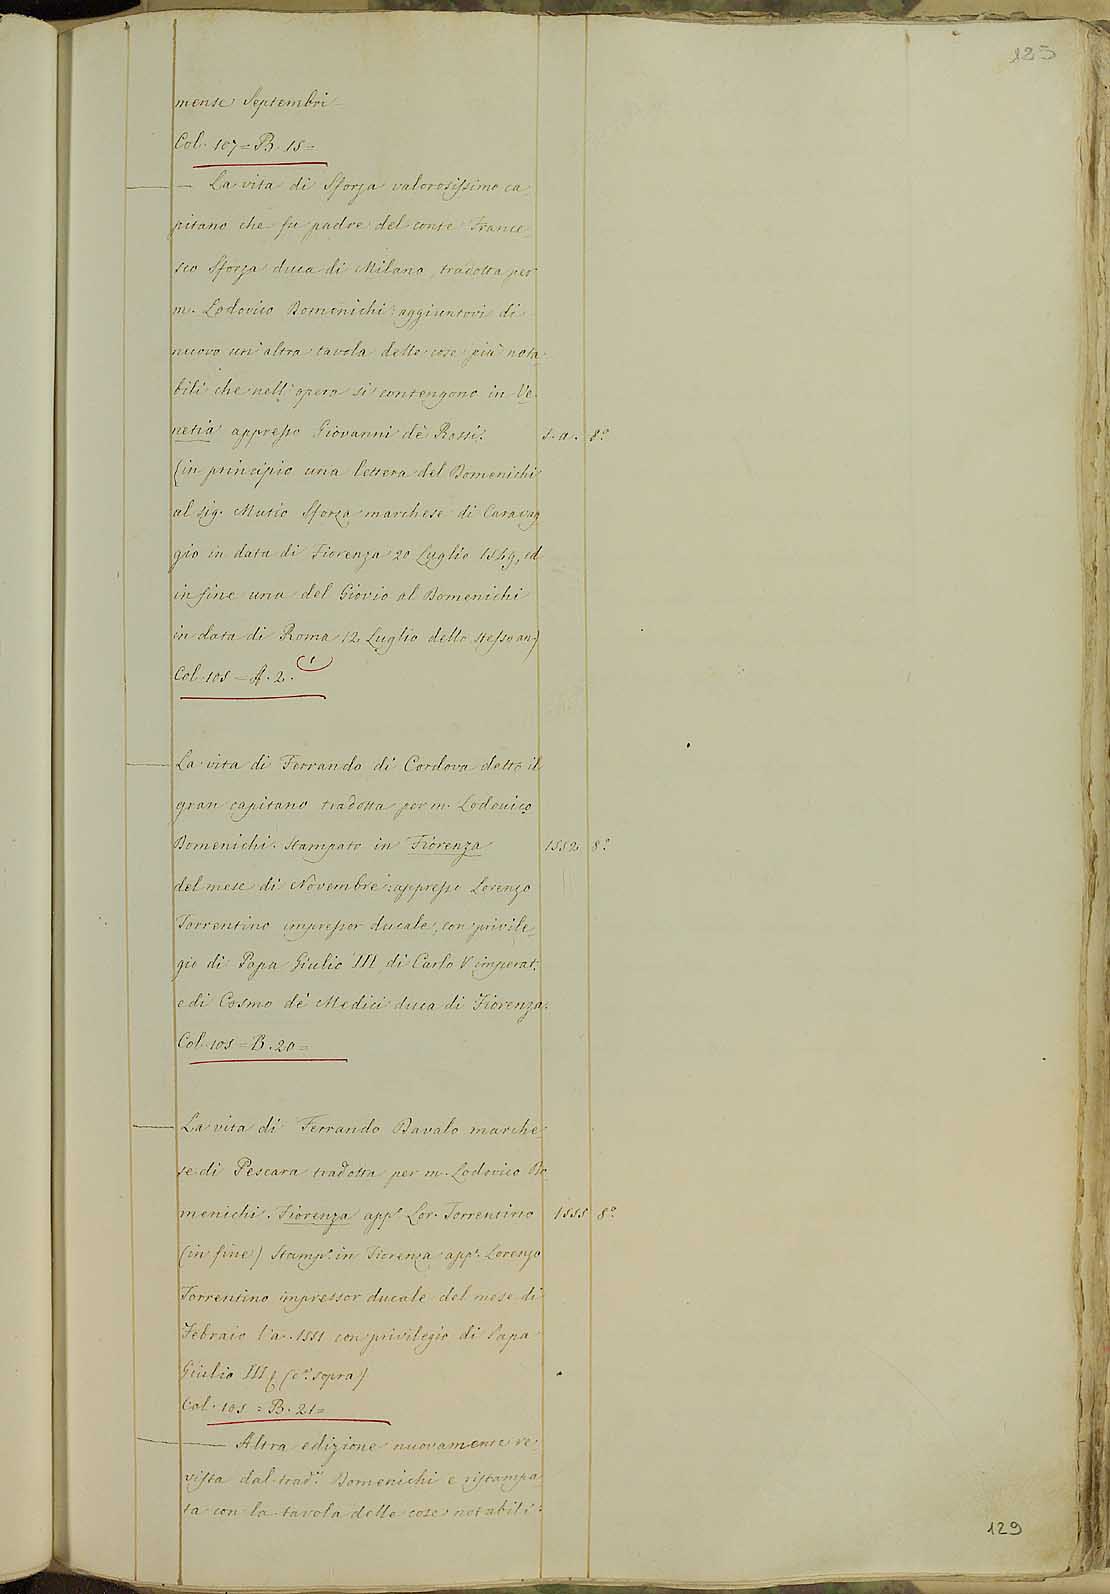 125
mense Septembri
Col. 107 = B. 15 =
— La vita di Sforza valorosissimo ca
pitano che fu padre del conte France-
sco Sforza duca di Milano, tradotta per
m. Lodovico Domenichi: aggiuntovi di
nuovo un' altra tavola delle cose più nota-
bili che nell' opera si contengono in Ve-
netia appresso Giovanni de' Rossi. s. a. 8.°
(in principio una lettera del Domenichi
al sig. Mutio Sforza marchese di Caravag
gio in data di Fiorenza 20 Luglio 1549, ed
in fine una del Giovio al Domenichi
in data di Roma 12 Luglio dello stesso an.)
Col. 105 = A. 2.
La vita di Ferrando di Cordova detto il
gran capitano tradotta per m. Lodovico
Domenichi. Stampato in Fiorenza 1552 8.°
del mese di Novembre: appresso Lorenzo
Torrentino impressor ducale, con privile-
gio di Papa Giulio III, di Carlo V imperat.
e di Cosmo de' Medici duca di Fiorenza.
Col. 105 = B. 20 =
La vita di Ferrando Davalo marche-
se di Pescara tradotta per m. Lodovico Do
menichi. Fiorenza app.° Lor. Torrentino 1555 8.°
(in fine) Stamp.° in Fiorenza app.° Lorenzo
Torrentino impressor ducale del mese di
Febraio l'a. 1551 con privilegio di Papa
Giulio III (c.° sopra)
Col. 105 = B. 21 =
— Altra edizione nuovamente re-
vista dal trad.° Domenichi e ristampa-
ta con la tavola delle cose notabili:
129